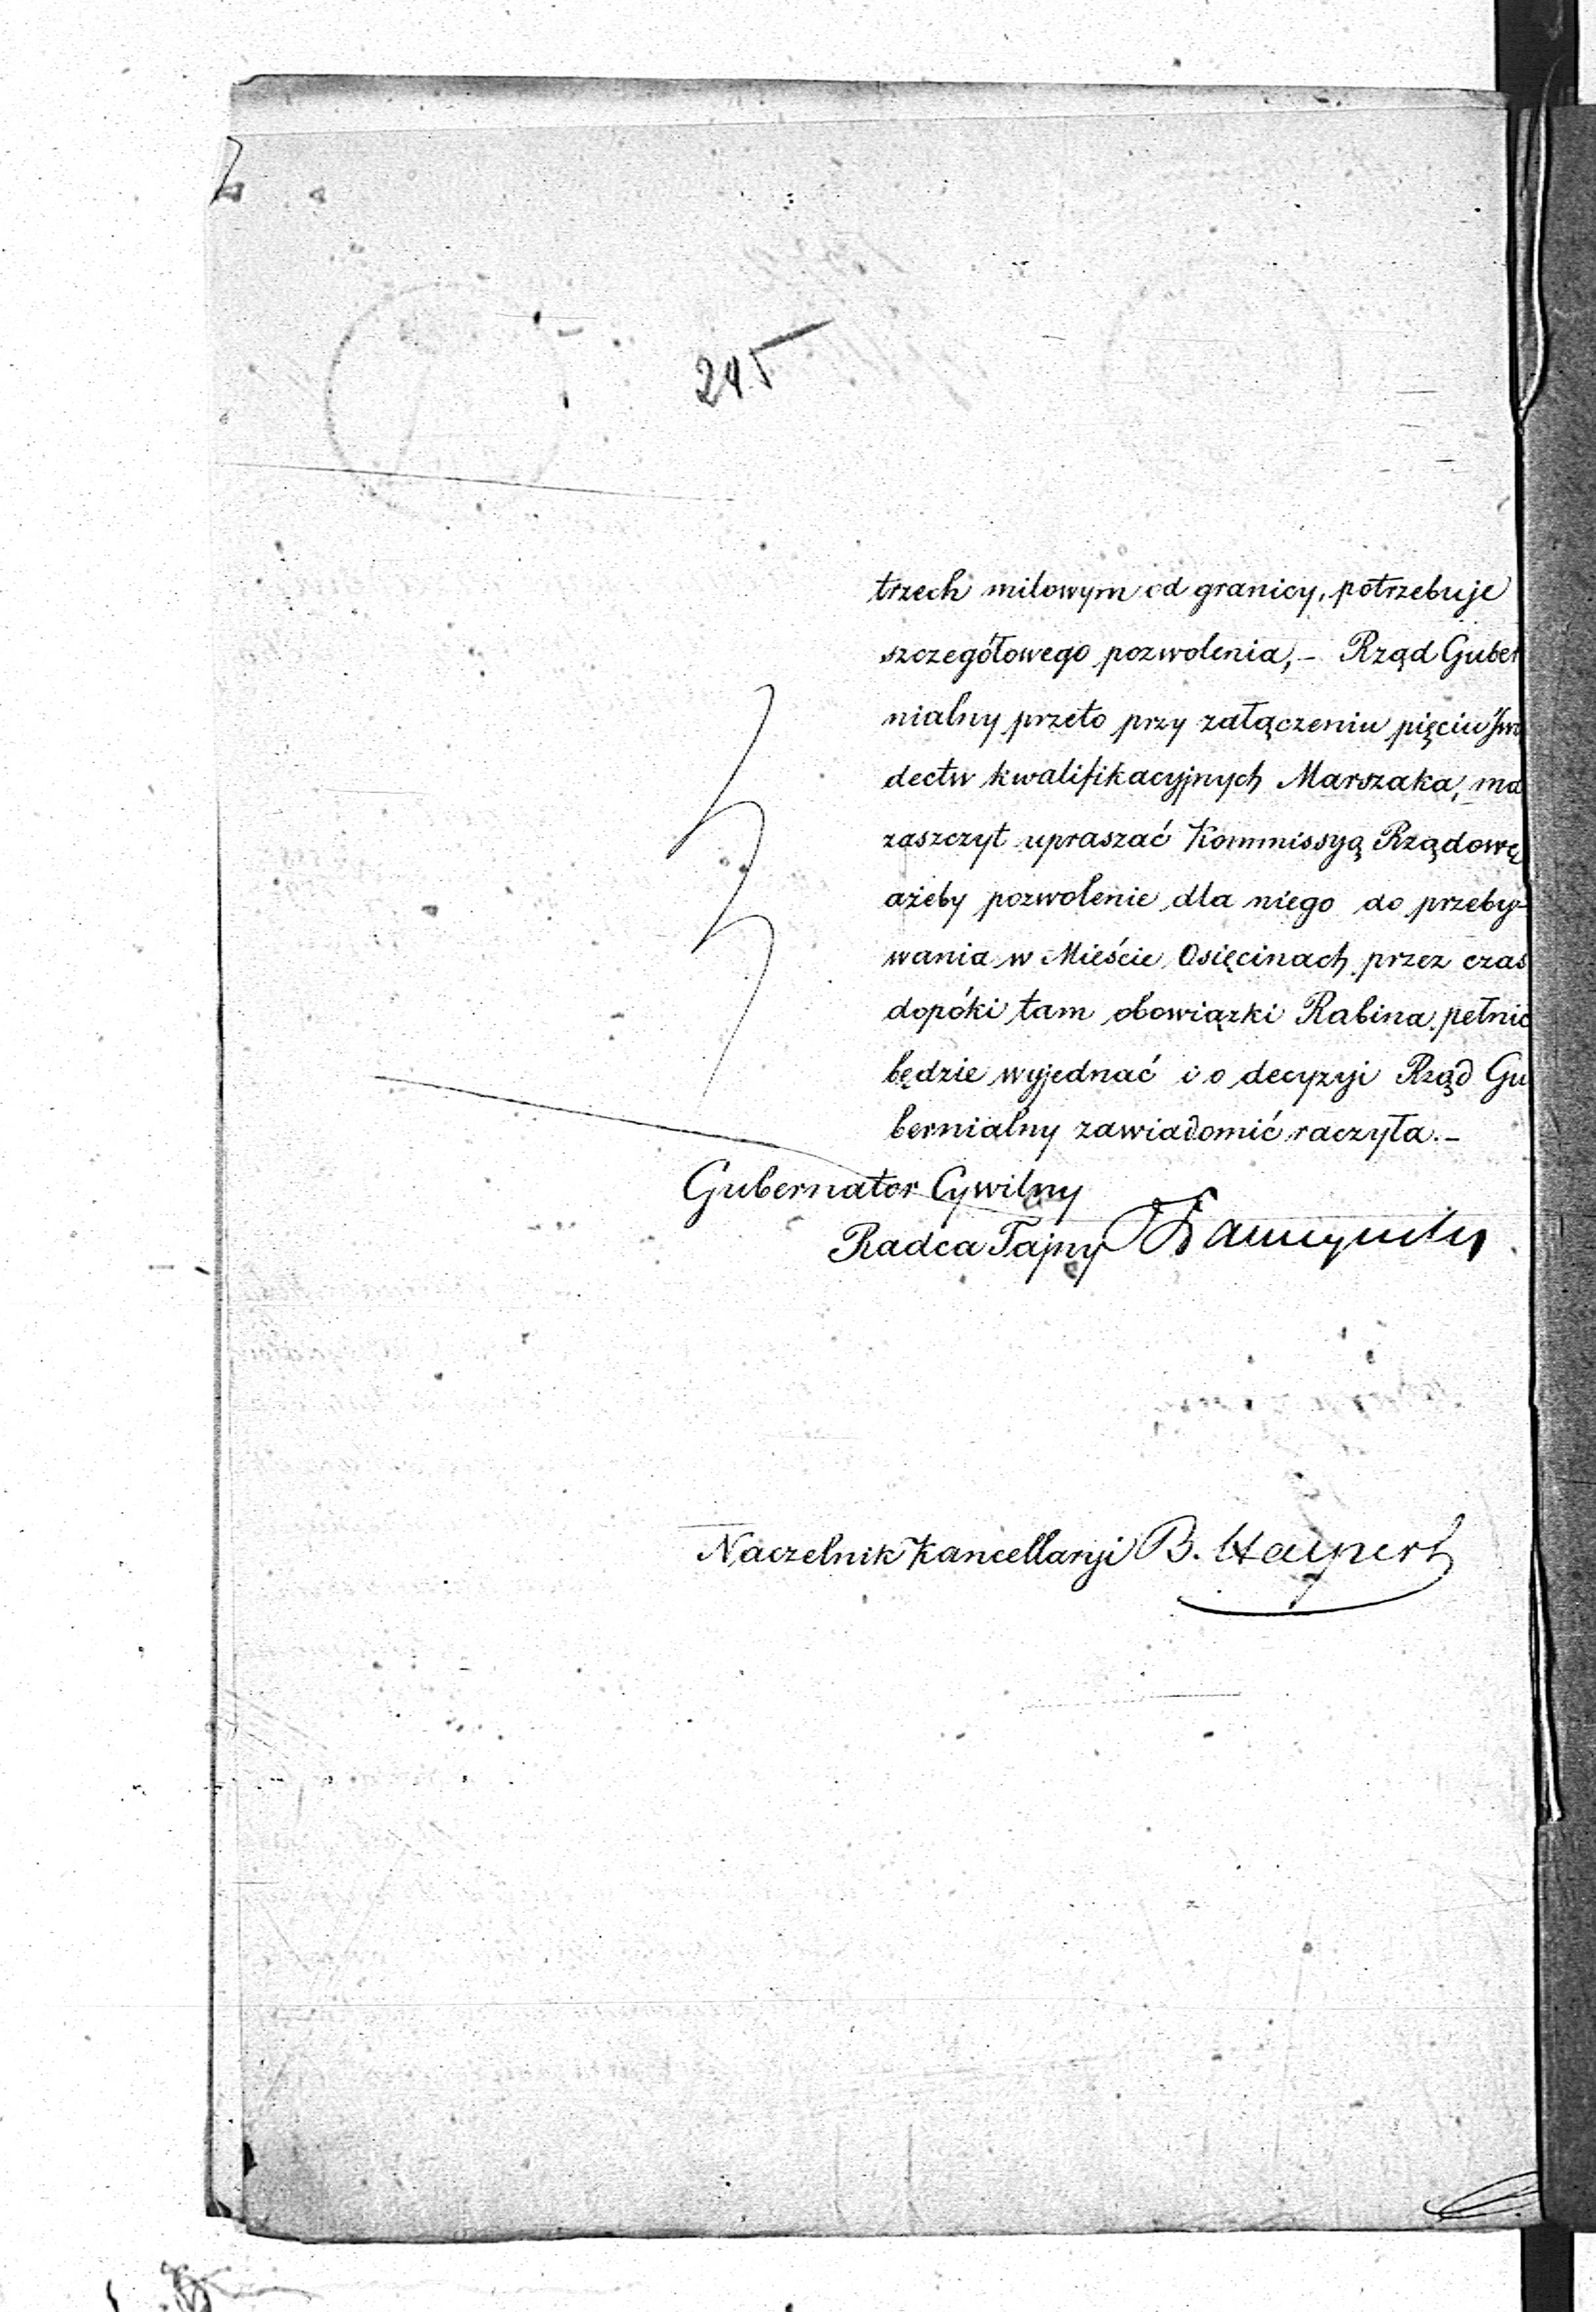 245
trzech milowym od granicy, potrzebuje
szczegółowego pozwolenia, – Rząd Guber
nialny przeto przy załączeniu pięciu Świa
dectw kwalifikacyjnych Marszaka, ma
zaszczyt upraszać Kommissyą Rządową
ażeby pozwolenie dla niego do przeby-
wania w Mieście Osięcinach przez czas
dopóki tam obowiązki Rabina pełnić
będzie wyjednać i o decyzyi Rząd Gu
bernialny zawiadomić raczyła. –
Gubernator Cywilny
Radca Tajny
Naczelnik Kancellaryi B. Halpert